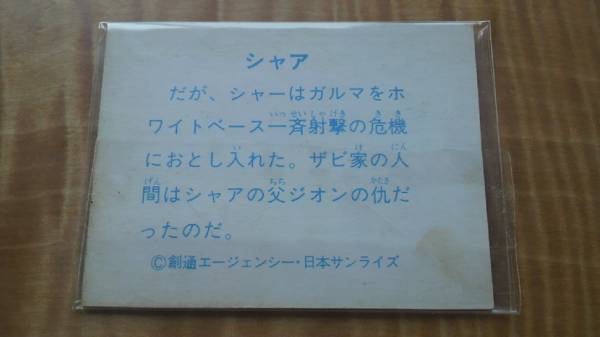 シャア
だが、シャーはガルマをホ
ワイトベース一斉射撃の危機
におとし入れた。ザビ家の人
間はシャアの父ジオンの仇だ
ったのだ。
©創通エージェンシー・日本サンライズ